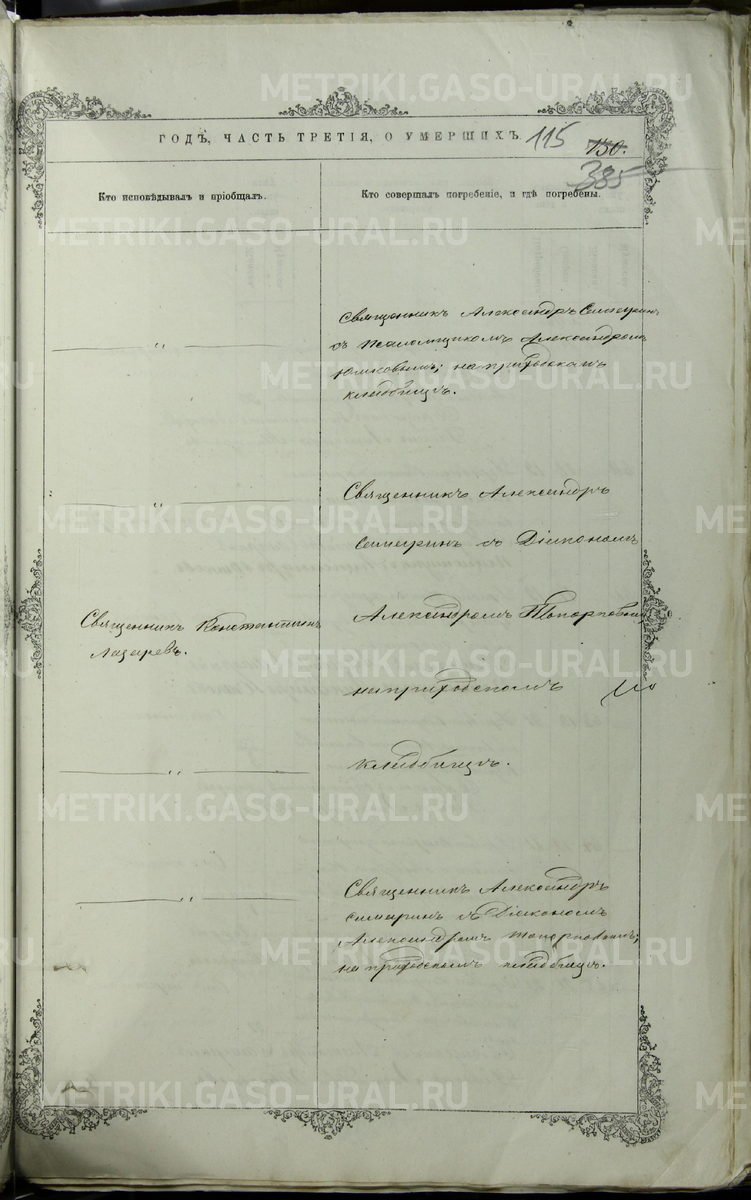 METRIKI.GASO-URAL.RU
ГОДЪ, ЧАСТЬ ТРЕТІЯ, О УМЕРШИХЪ.
115
130.
335
Кто исповѣдывалъ и пріобщалъ.
Кто совершалъ погребеніе, и гдѣ погребены.
Священникъ Александръ Семеринъ
съ Псаломщикомъ Александромъ
Юшковымъ; на приходскомъ
кладбищѣ.
Священникъ Александръ
Семеринъ съ Діакономъ
Священникъ Константинъ
Лазаревъ.
Александромъ Топорковымъ
на приходскомъ
кладбищѣ.
Священникъ Александръ
Симеринъ съ Діакономъ
Александромъ Топорковымъ;
на приходскомъ кладбищѣ.